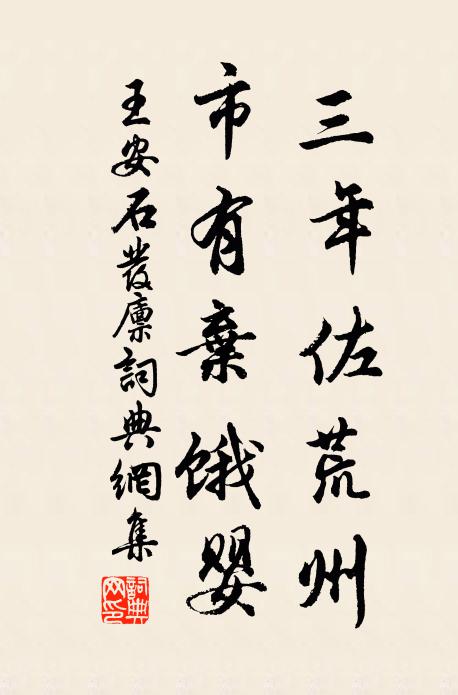 三年佐荒州
市有棄餓嬰
王安石發廪詞典網集
詞典網印